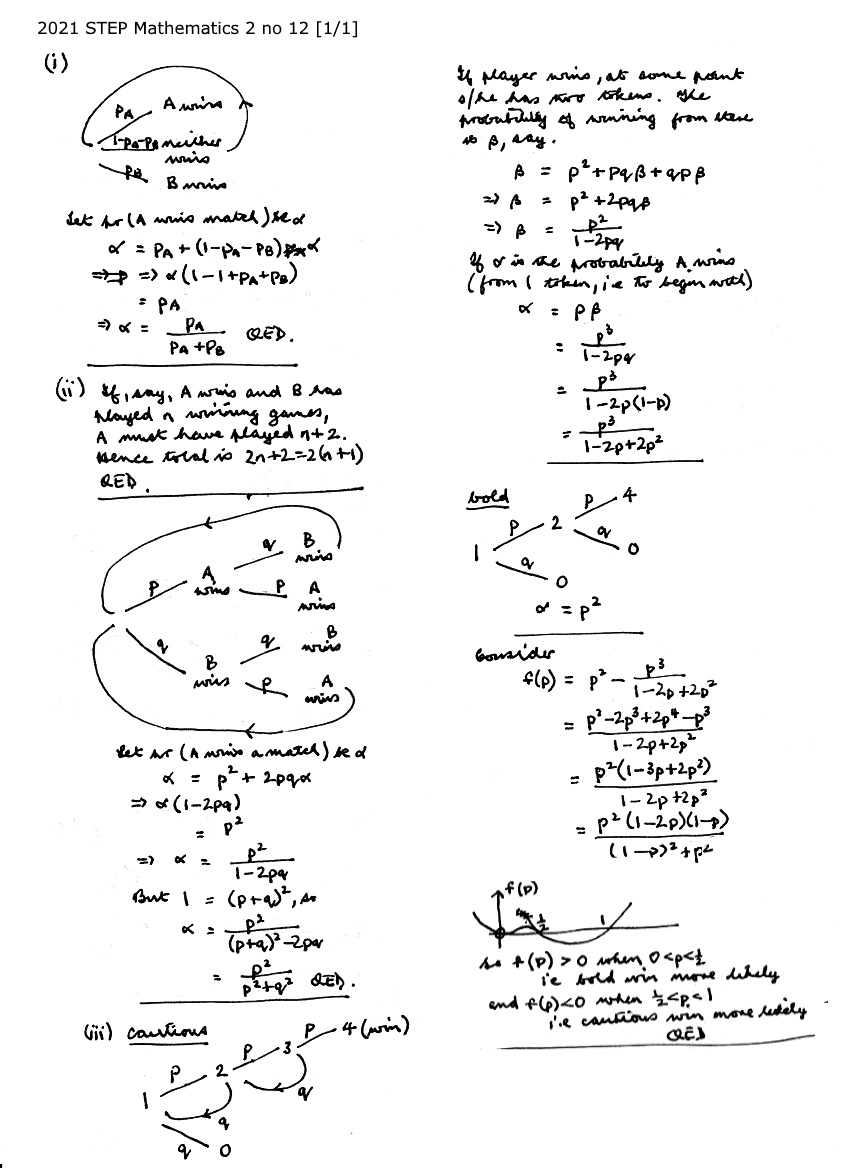 2021 STEP Mathematics 2 no 12 [1/1]
(i)
pA A wins
1-pA-pB neither
wins
pB B wins
Let pr (A wins match) be α
α = pA + (1-pA-pB) α
=> α(1-1+pA+pB)
= pA
=> α = pA / (pA+pB) QED.
(ii) If, say, A wins and B has
played n winning games,
A must have played n+2.
Hence total is 2n+2=2(n+1)
QED.
p A wins
q B wins
p A wins
q B wins
q B wins
p A wins
Let pr (A wins a match) be α
α = p² + 2pqα
=> α(1-2pq)
= p²
=> α = p² / (1-2pq)
But 1 = (p+q)², so
α = p² / ((p+q)²-2pq)
= p² / (p²+q²) QED.
(iii) cautious
1 p 2 p 3 p 4 (win)
q q
q 0
If player wins, at some point
s/he has two tokens. The
probability of winning from there
is β, say.
β = p² + pqβ + qpβ
=> β = p² + 2pqβ
=> β = p² / (1-2pq)
If α is the probability A wins
(from 1 token, i.e to begin with)
α = pβ
= p³ / (1-2pq)
= p³ / (1-2p(1-p))
= p³ / (1-2p+2p²)
bold
1 p 2 p 4
q 0
q 0
α = p²
Consider
f(p) = p² - p³ / (1-2p+2p²)
= (p²-2p³+2p⁴-p³) / (1-2p+2p²)
= p²(1-3p+2p²) / (1-2p+2p²)
= p²(1-2p)(1-p) / ((1-p)²+p²)
f(p)
½ 1
so f(p) > 0 when 0<p<½
i.e bold win more likely
and f(p)<0 when ½<p<1
i.e cautious win more likely
QED